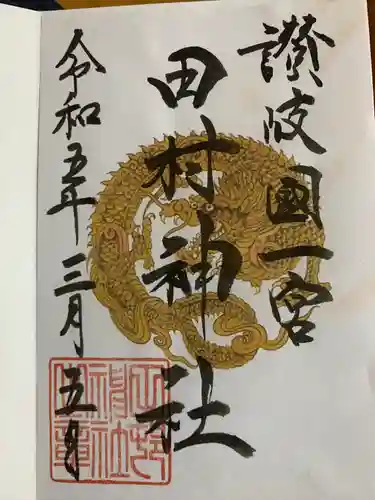 讃岐國一宮
田村神社
令和五年三月五日